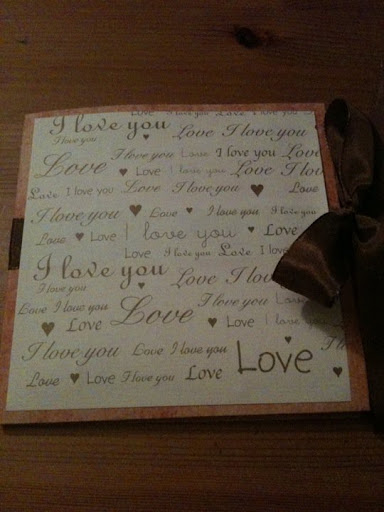 Love Love Love I love you
I love you Love I love you
I love you
Love I love you Love I love you
Love ♥ Love I love you Love Love
Love I love you Love I love you ♥ Love
I love you ♥ Love ♥ I love you I love you
Love ♥ Love I love you ♥ Love
Love I love you Love I love
I love you Love I love
Love I love you Love I love you Love
♥ Love ♥ Love I love you
I love you Love I love you Love
Love ♥ Love I love you Love